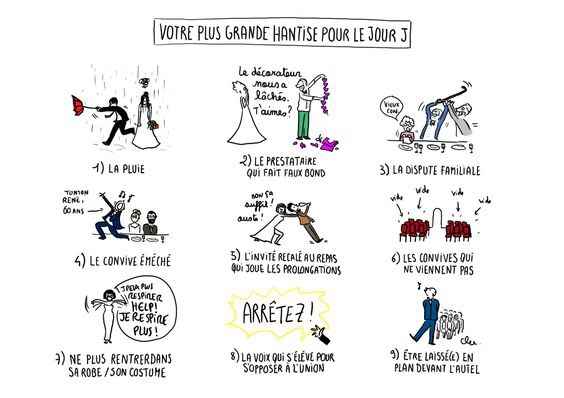 VOTRE PLUS GRANDE HANTISE POUR LE JOUR J
1) LA PLUIE
Le décorateur
nous a
lâchés.
T'aimes?
2) LE PRESTATAIRE
QUI FAIT FAUX BOND
VIEUX
CON.
3) LA DISPUTE FAMILIALE
TONTON
RENÉ,
60 ANS
4) LE CONVIVE ÉMÉCHÉ
NON ÇA
suffit!
ouste!
5) L'INVITÉ RECALÉ AU REPAS
QUI JOUE LES PROLONGATIONS
vide
vide
vide
vide
6) LES CONVIVES QUI
NE VIENNENT PAS
RESPIRER
HELP!
JE RESPIRE
PLUS!
7) NE PLUS RENTRER DANS
SA ROBE / SON COSTUME
ARRÊTEZ!
8) LA VOIX QUI S'ÉLÈVE POUR
S'OPPOSER À L'UNION
9) ÊTRE LAISSÉ(E) EN
PLAN DEVANT L'AUTEL